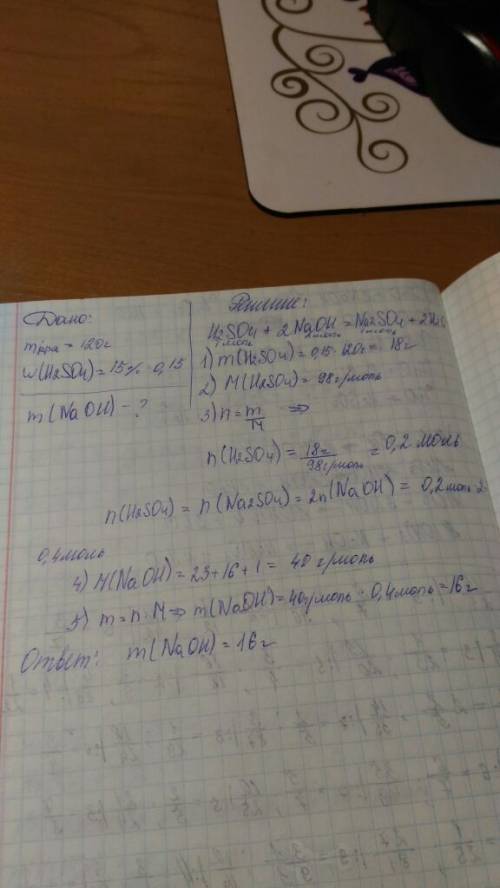 Дано:
mр-ра = 120г
w(H2SO4) = 15% 0,15
m(NaOH) - ?
Решение:
H2SO4 + 2NaOH = Na2SO4 + 2H2O
1моль 2моль 1моль
1) m(H2SO4) = 0,15 · 120г = 18г
2) M(H2SO4) = 98г/моль
3) n = m/M ⇒
n(H2SO4) = 18г/98г/моль = 0,2 моль
n(H2SO4) = n(Na2SO4) = 2n(NaOH) = 0,2моль · 2
0,4моль
4) M(NaOH) = 23 + 16 + 1 = 40 г/моль
5) m = n · M ⇒ m(NaOH) = 40г/моль · 0,4моль = 16г
Ответ: m(NaOH) = 16г